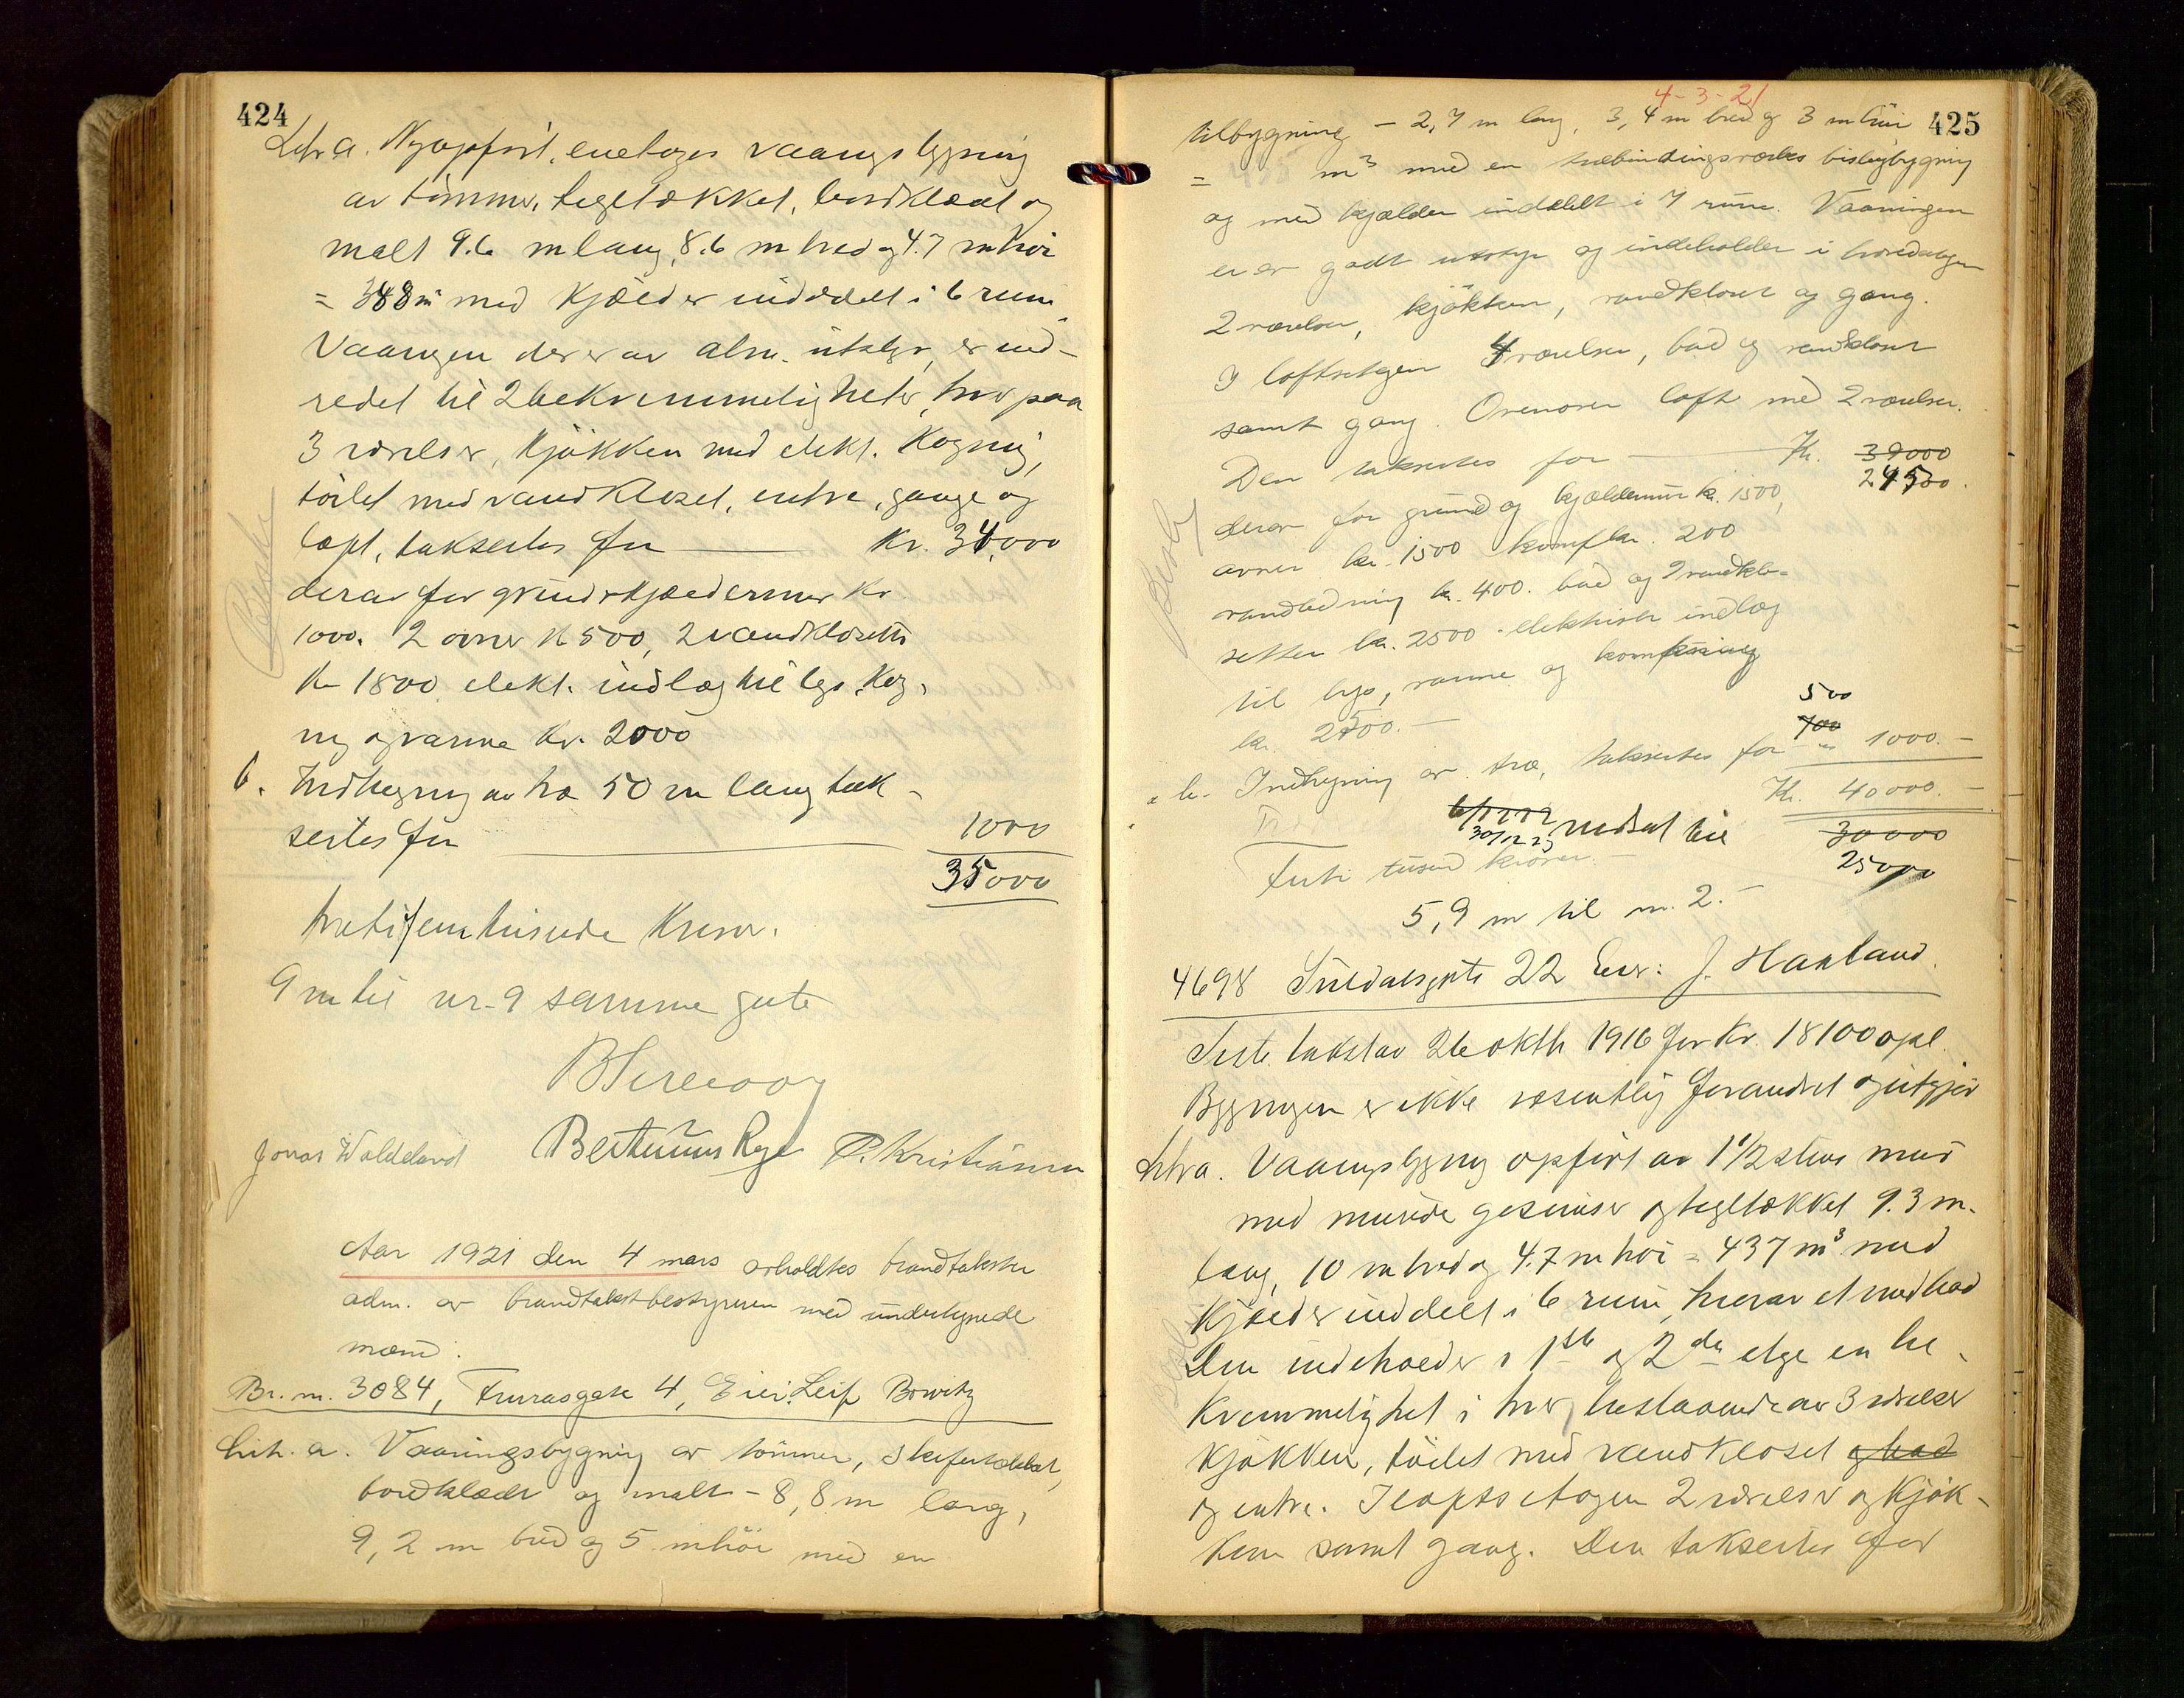 424
Litr a. Nyopført, enetages vaaningsbygning
av tømmer, tegltækket, bordklædt og
malt 9.6 m lang, 8.6 m bred og 4.7 m høi
= 388 m³ med kjælder inddelt i 6 rum.
Vaaningen der er av alm. utstyr, er ind-
redet til 2 bekvemmeligheter, hver paa
3 værelser, kjøkken med elekt. kogning,
toilet med vandkloset, entre, gange og
loft, takseres for kr. 34,000
derav for grund & kjældermur kr.
1000. 2 ovner k 500, 2 vandklosetter
kr 1800 elekt. indlæg til lys, kog-
ning og varme kr. 2000
b. Indhegning av træ 50 m lang tak-
seres for 1000
35000
tretifemtusinde kroner.
9 m til nr. 9 samme gate
Jonas Waldeland Bertinius Rege P. Kristiansen
Aar 1921 den 4 mars avholdtes brandtakster
adm. av brandtakstbestyreren med undertegnede
mænd.
Br. nr. 3084, Furrasgate 4, Eier: Leif Bowitz
Litr. a. Vaaningsbygning av tømmer, skifertækket,
bordklædt og malt - 8,8 m lang,
9,2 m bred og 5 m høi med en
4-3-21
425
tilbygning - 2,7 m lang, 3,4 m bred og 3 m høi
= m³ med en træbindingsverks bislagbygning
og med kjælder inddelt i 7 rum. Vaaningen
er av godt utstyr og indeholder i hovedetagen
2 værelser, kjøkken, vandkloset og gang.
I loftsetagen 4 værelser, bad og vandkloset
samt gang. Ovenover loft med 2 værelser.
Den takseres for Kr. 39000
24500.
derav for grund og kjældermur kr. 1500,
ovner kr. 1500 komfkr. 200
vandledning kr. 400. bad og 2 vandklo-
setter kr. 2500. elektrisk indlæg
til lys, varme og
kr. 2500.-
500
700
" b. Indhegning av træ, takseres for " 1000.-
Kr. 40000.-
30/12 23 nedsat til 30000
Furti tusen kroner.- 25000
5,9 m til nr. 2.-
4698 Suldalsgate 22 Eier: J. Hauland.
Siste takst av 26 oktb 1916 for kr. 18100 opl.
Bygningen er ikke væsentlig forandret og utgjør
Litra. Vaaningsbygning opført av 1 1/2 stens mur
med murede gesimser og tegltækket 9.3 m.
lang, 10 m bred og 4.7 m høi = 437 m³ med
kjælder inddelt i 6 rum, hvorav et med bad
Den indeholder i 1ste og 2den etage en be-
kvemmelighet i hver, bestaaende av 3 værelser
kjøkken, toilet med vandkloset og bad
og entre. I loftsetagen 2 værelser og kjøk-
ken samt gang. Den takseres for